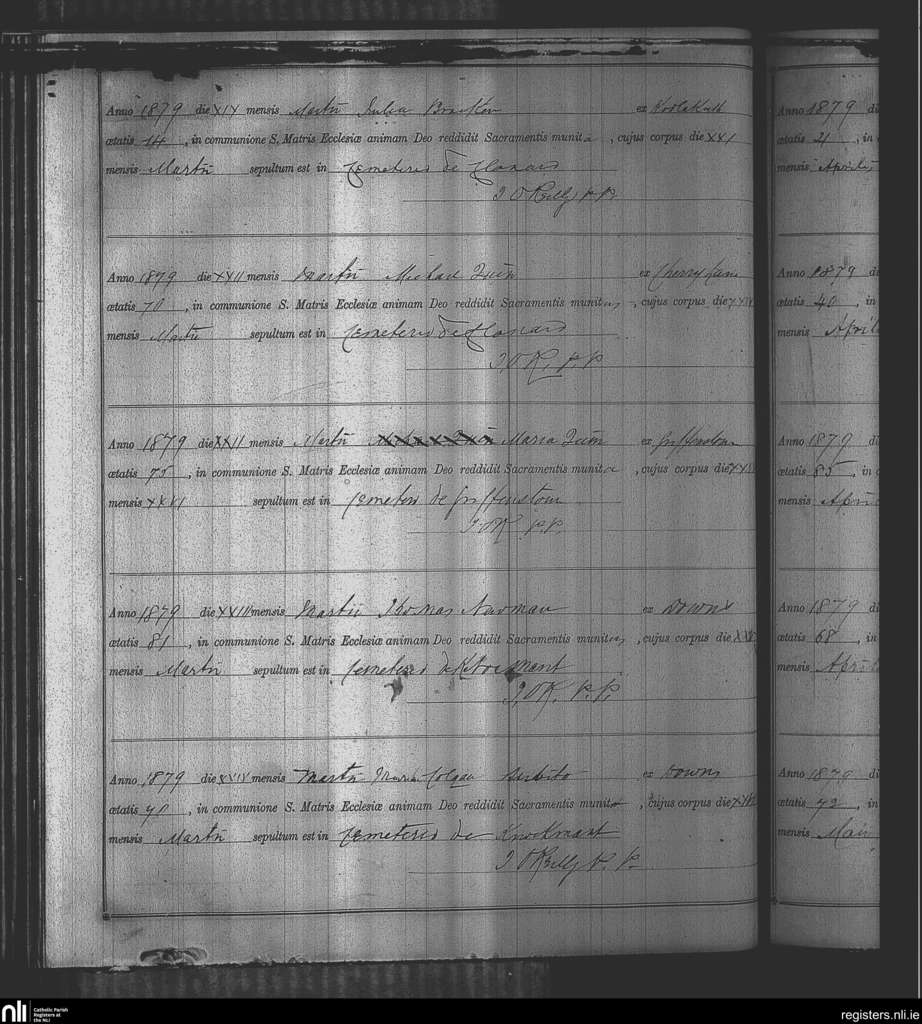 Anno 1879 die XIX mensis Martii Julia Bracken ex
ætatis 14, in communione S. Matris Ecclesiæ animam Deo reddidit Sacramentis munita, cujus corpus die XXI
mensis Martii sepultum est in Cemeterio de Clonard
J O'Reilly P.P.
Anno 1879 die XXII mensis Martii Michael Quin ex Cherry Lane
ætatis 70, in communione S. Matris Ecclesiæ animam Deo reddidit Sacramentis munitus, cujus corpus die
mensis Martii sepultum est in Cemeterio de Clonard
J. O'R. P.P.
Anno 1879 die XXII mensis Martii Maria Quin ex Griffenstown
ætatis 75, in communione S. Matris Ecclesiæ animam Deo reddidit Sacramentis munita, cujus corpus die
mensis XXVI sepultum est in Cemeterio de Griffenstown
J O'R P.P.
Anno 1879 die XXIII mensis Martii Thomas Newman ex Downs
ætatis 81, in communione S. Matris Ecclesiæ animam Deo reddidit Sacramentis munitus, cujus corpus die
mensis Martii sepultum est in Cemeterio de Knockmant
J. O'R. P.P.
Anno 1879 die XXIV mensis Martii Maria Colgan ex Downs
ætatis 70, in communione S. Matris Ecclesiæ animam Deo reddidit Sacramentis munita, cujus corpus die
mensis Martii sepultum est in Cemeterio de Knockmant
J O'Reilly P.P.
Anno 1879 di
ætatis 21, in
mensis Aprilis
Anno 1879 di
ætatis 40, in
mensis April
Anno 1879 di
ætatis 85, in
mensis Apri
Anno 1879 di
ætatis 68, in
mensis April
Anno 1879 di
ætatis 72, in
mensis Maii
nli Catholic Parish
Registers at
the NLI
registers.nli.ie